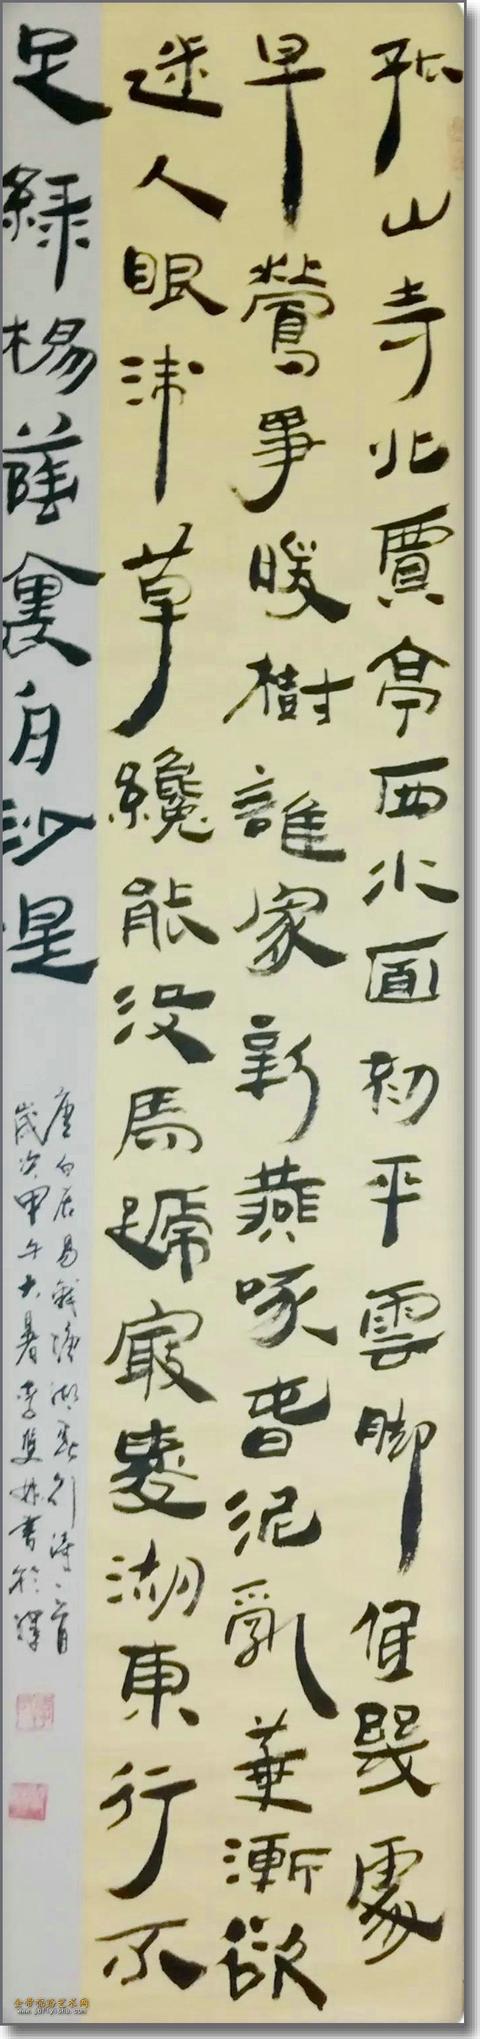 孤山寺北賈亭西水面初平雲脚低幾處
早鶯爭暖樹誰家新燕啄春泥亂華漸欲
迷人眼淺草纔能没馬蹄最愛湖東行不
足綠楊蔭裏白沙堤
唐白居易錢塘湖春行詩一首
歲次甲午大暑李雙林書於
金带福路艺术网
www.jdflyishu.com